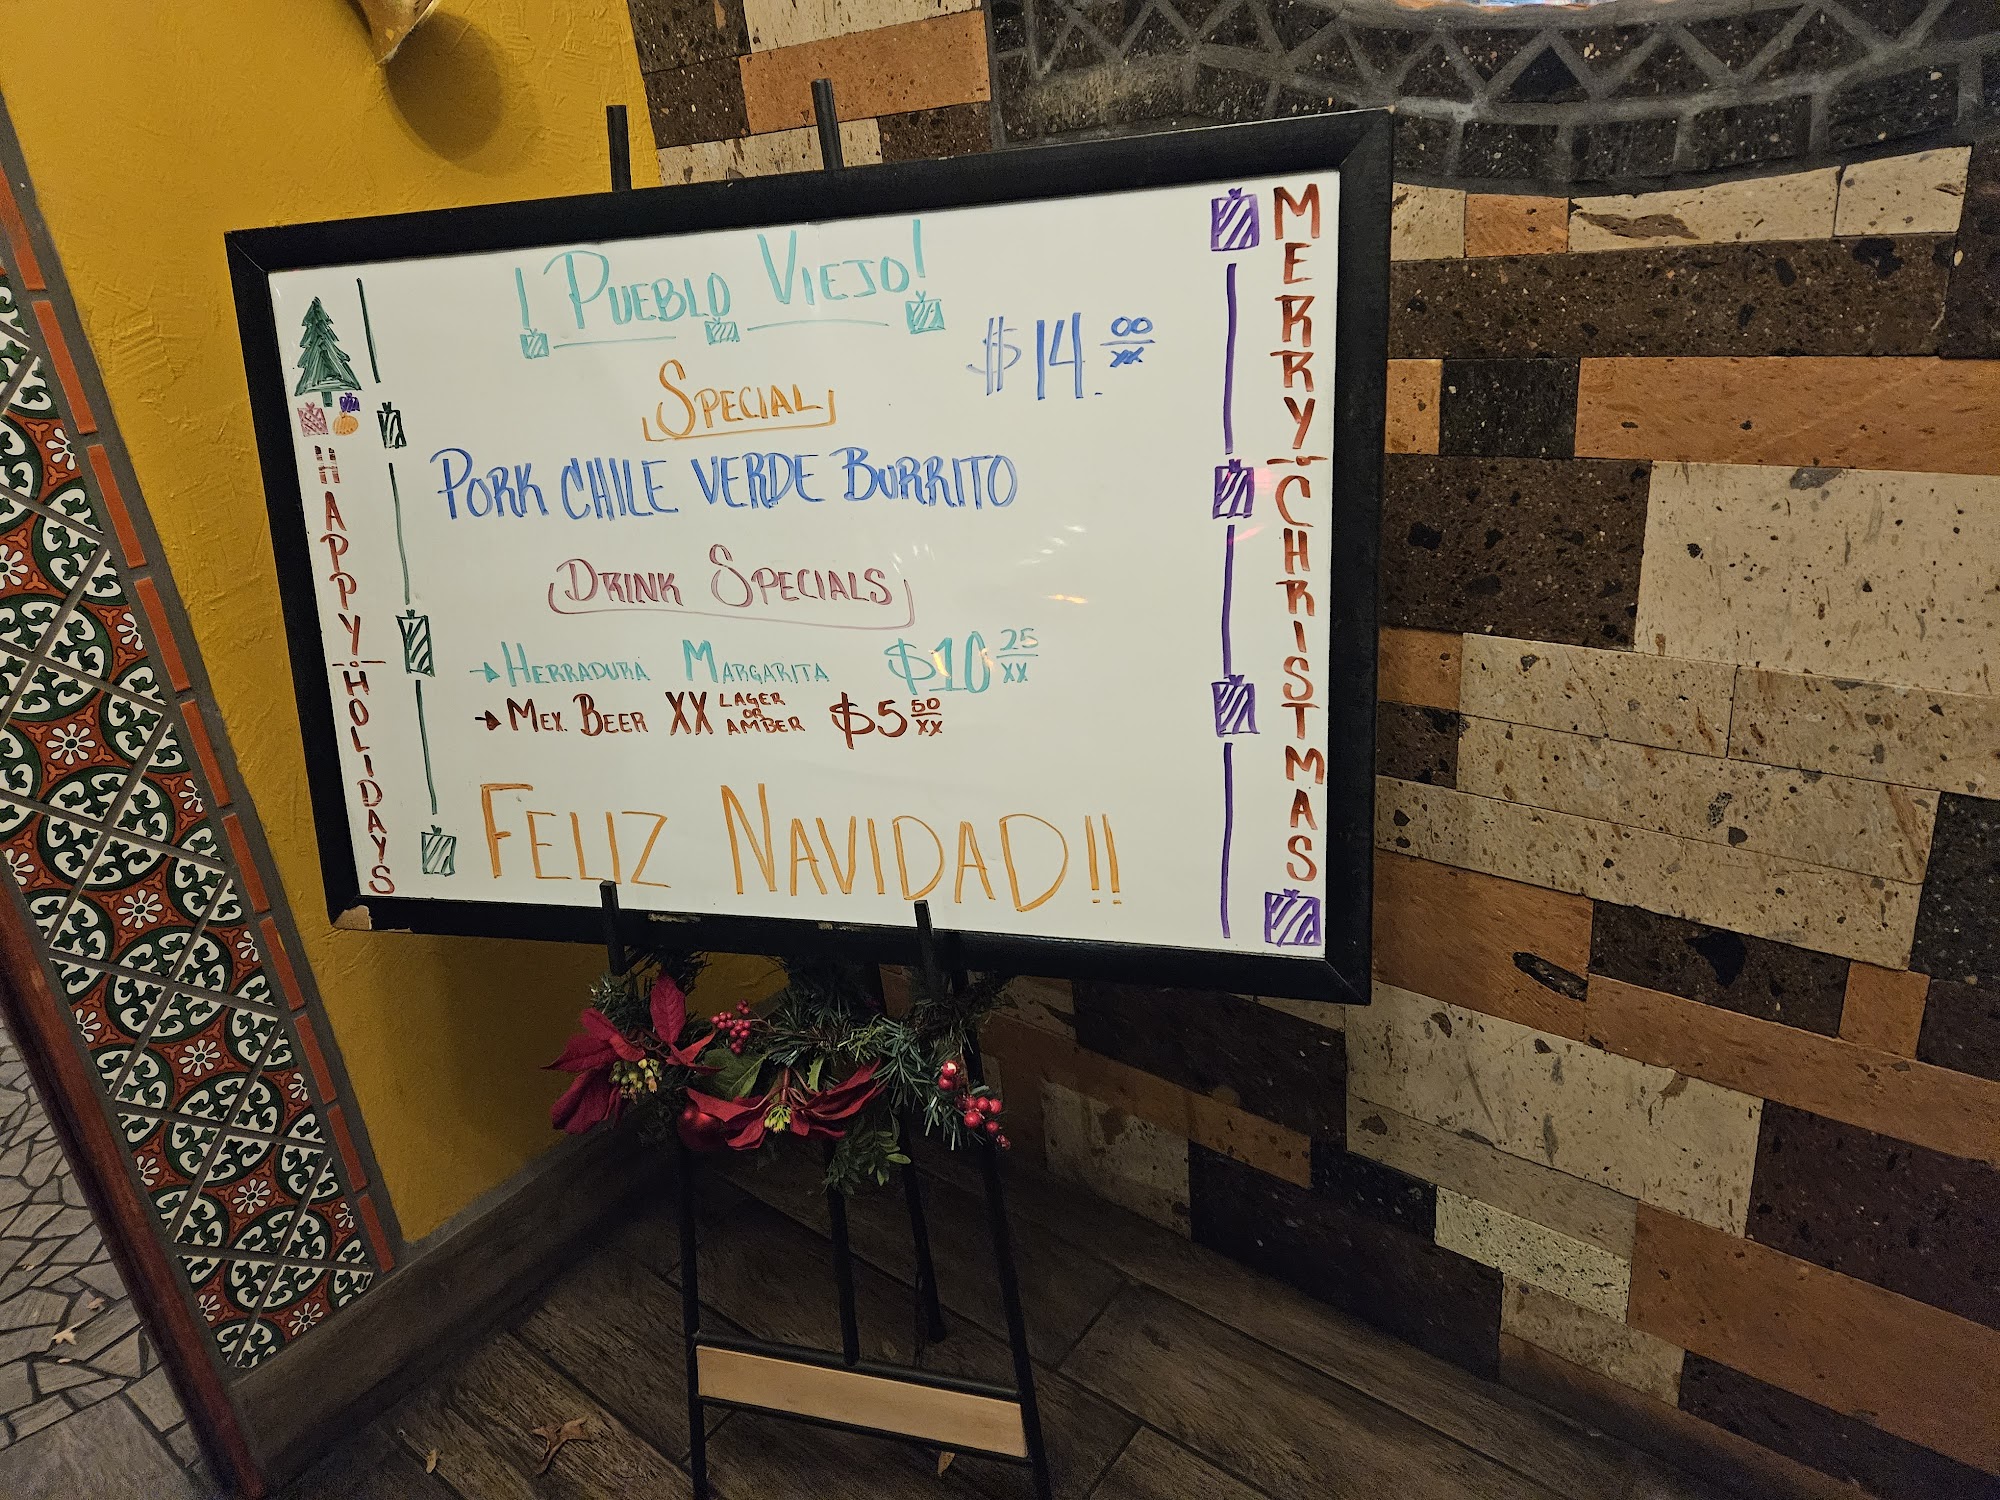 ¡PUEBLO VIEJO!
$14.00/xx
SPECIAL
PORK CHILE VERDE BURRITO
DRINK SPECIALS
→ HERRADURA MARGARITA $10 25/xx
→ MEX. BEER XX LAGER OR AMBER $5 50/xx
FELIZ NAVIDAD!!
HAPPY HOLIDAYS
MERRY CHRISTMAS